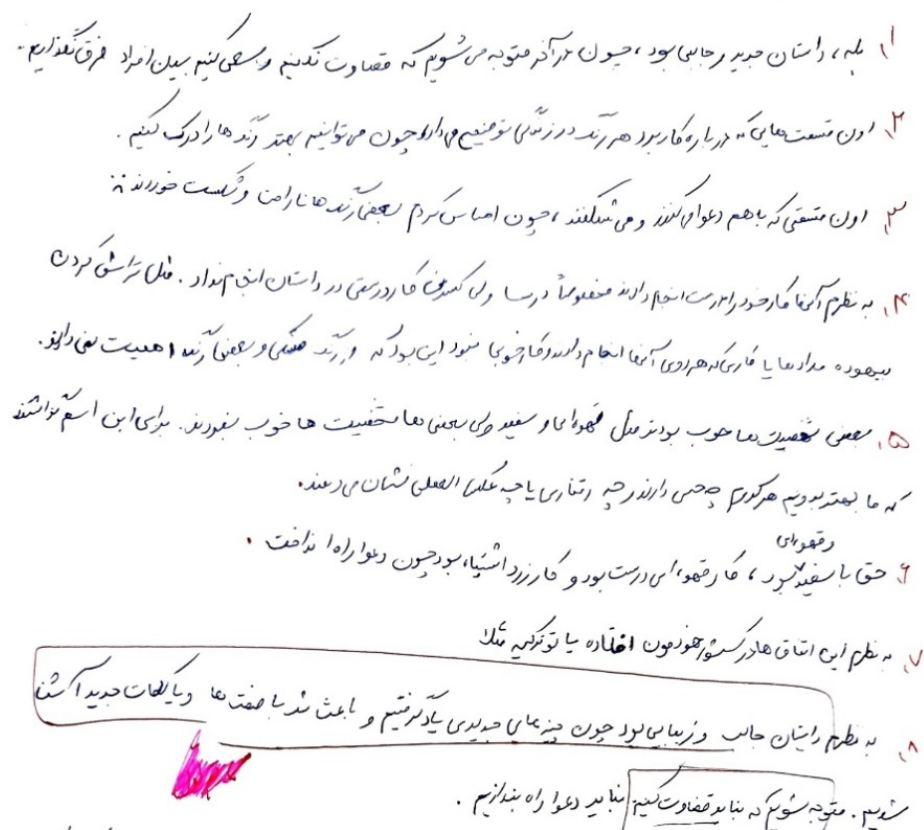 ۱. بله، داستان جدید و جالبی بود، چون در آخر متوجه می‌شویم که قضاوت نکنیم و سعی کنیم بین افراد فرق نگذاریم.
۲. اون قسمت‌هایی که درباره کاربرد هر رنگ در زندگی توضیح می‌داد چون می‌توانیم بهتر رنگ‌ها را درک کنیم.
۳. اون قسمتی که باهم دعوا می‌کنند و می‌شکنند، چون احساس کردم بعضی رنگ‌ها ناراحت و شکست خوردند.
۴. به نظرم آنها کار خود را درست انجام دادند مخصوصاً ولی کار درستی در داستان انجام نداد. مثل تراش کردن
بیهوده مدادها یا کاری که هر دوی آنها انجام دادند و کار خوبی نبود این بود که رنگ مشکی و بعضی رنگ اهمیت نمی‌دادند.
۵. بعضی شخصیت‌ها خوب بودند مثل قهوه‌ای و سفید ولی بعضی‌ها شخصیت‌ها خوب نبودند. برای این اسم گذاشتند
که ما بهتر بدونیم هر کدوم چه حسی دارند و چه رفتاری یا چه عکس العملی نشان می‌دهند.
و قهوه‌ای
۶. حق با سفید بود، کار قهوه‌ای درست بود و کار زرد اشتباه بود چون دعوا راه انداخت.
۷. به نظرم این اتفاق‌ها در کشور خودمون افتاده یا تو ترکیه مثلا
۸. به نظرم داستان جالب و زیبایی بود چون چیزهای جدیدی یاد گرفتیم و باعث شد با صفت‌ها و یا کلمات جدید آشنا
شدیم. متوجه شویم که نباید قضاوت کنیم، نباید دعوا راه بندازیم.